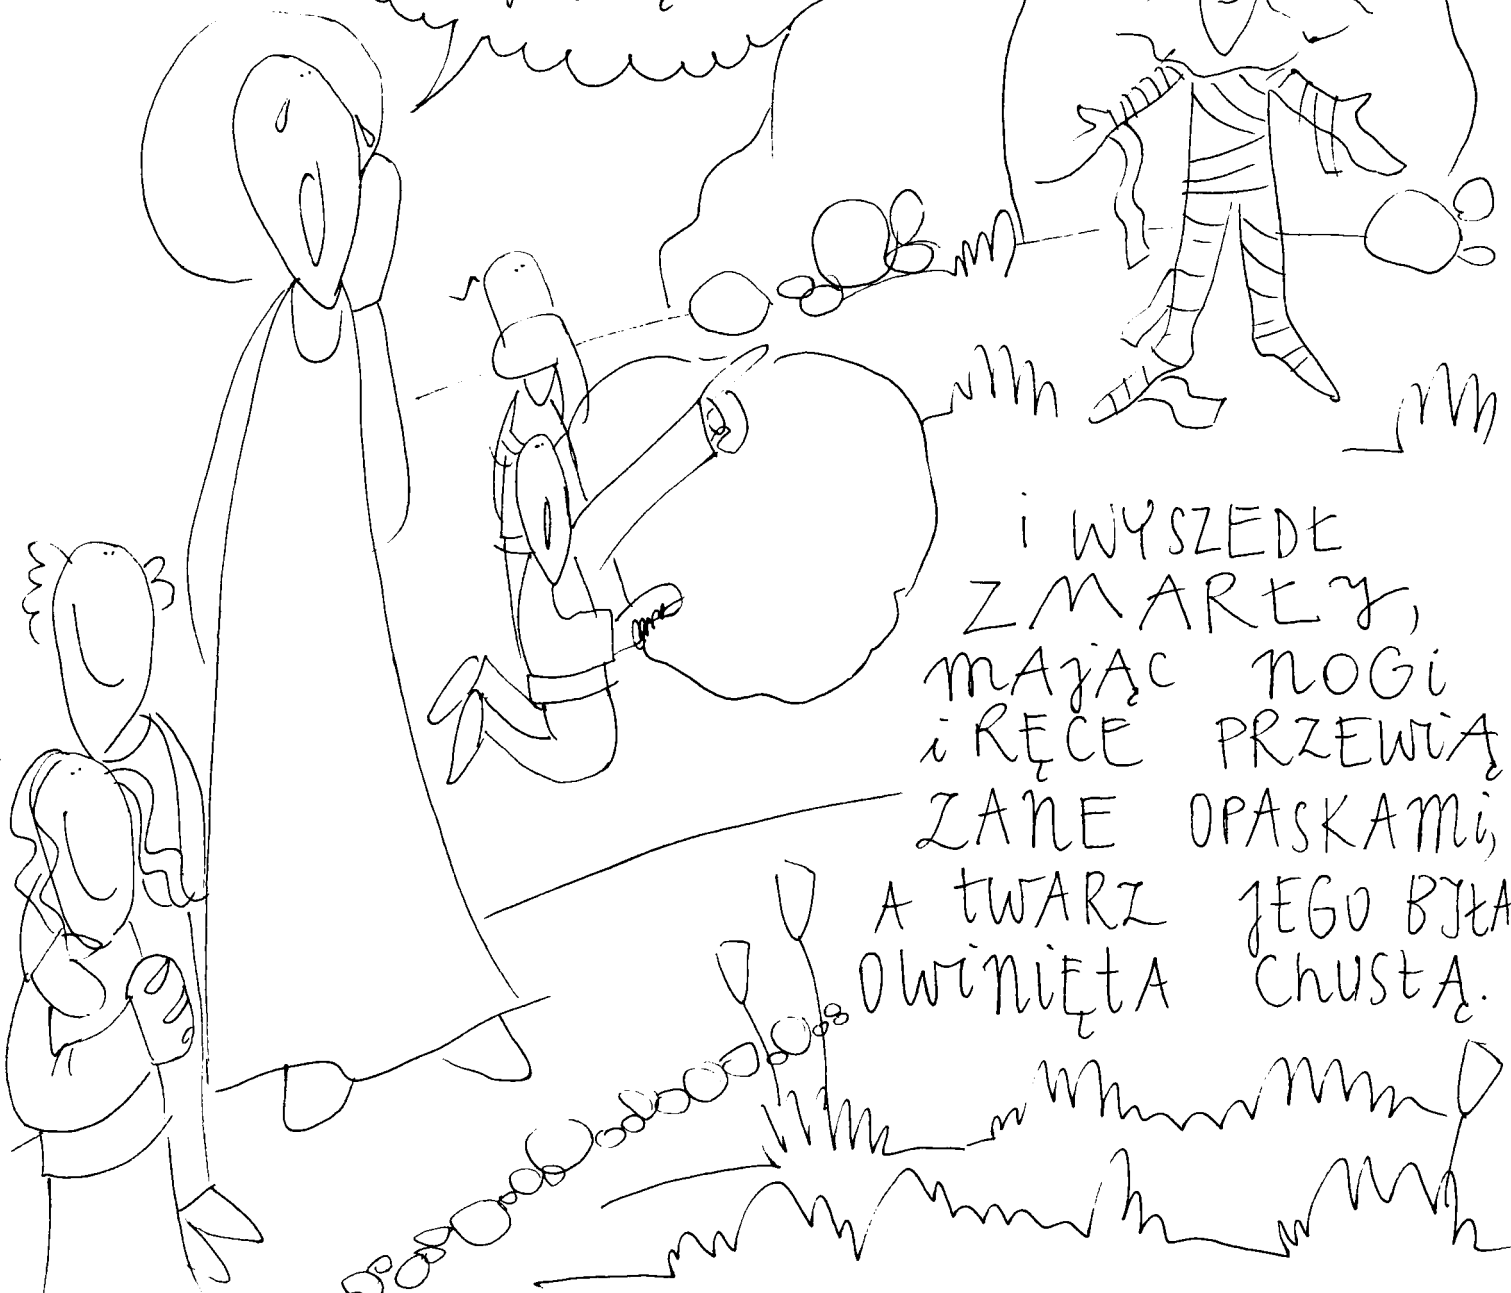 i WYSZEDŁ
ZMARŁY,
MAJĄC NOGi
i RĘCE PRZEWiĄ
ZANE OPASKAMi,
A TWARZ JEGO BYŁA
OWiNIĘTA ChUSTĄ.